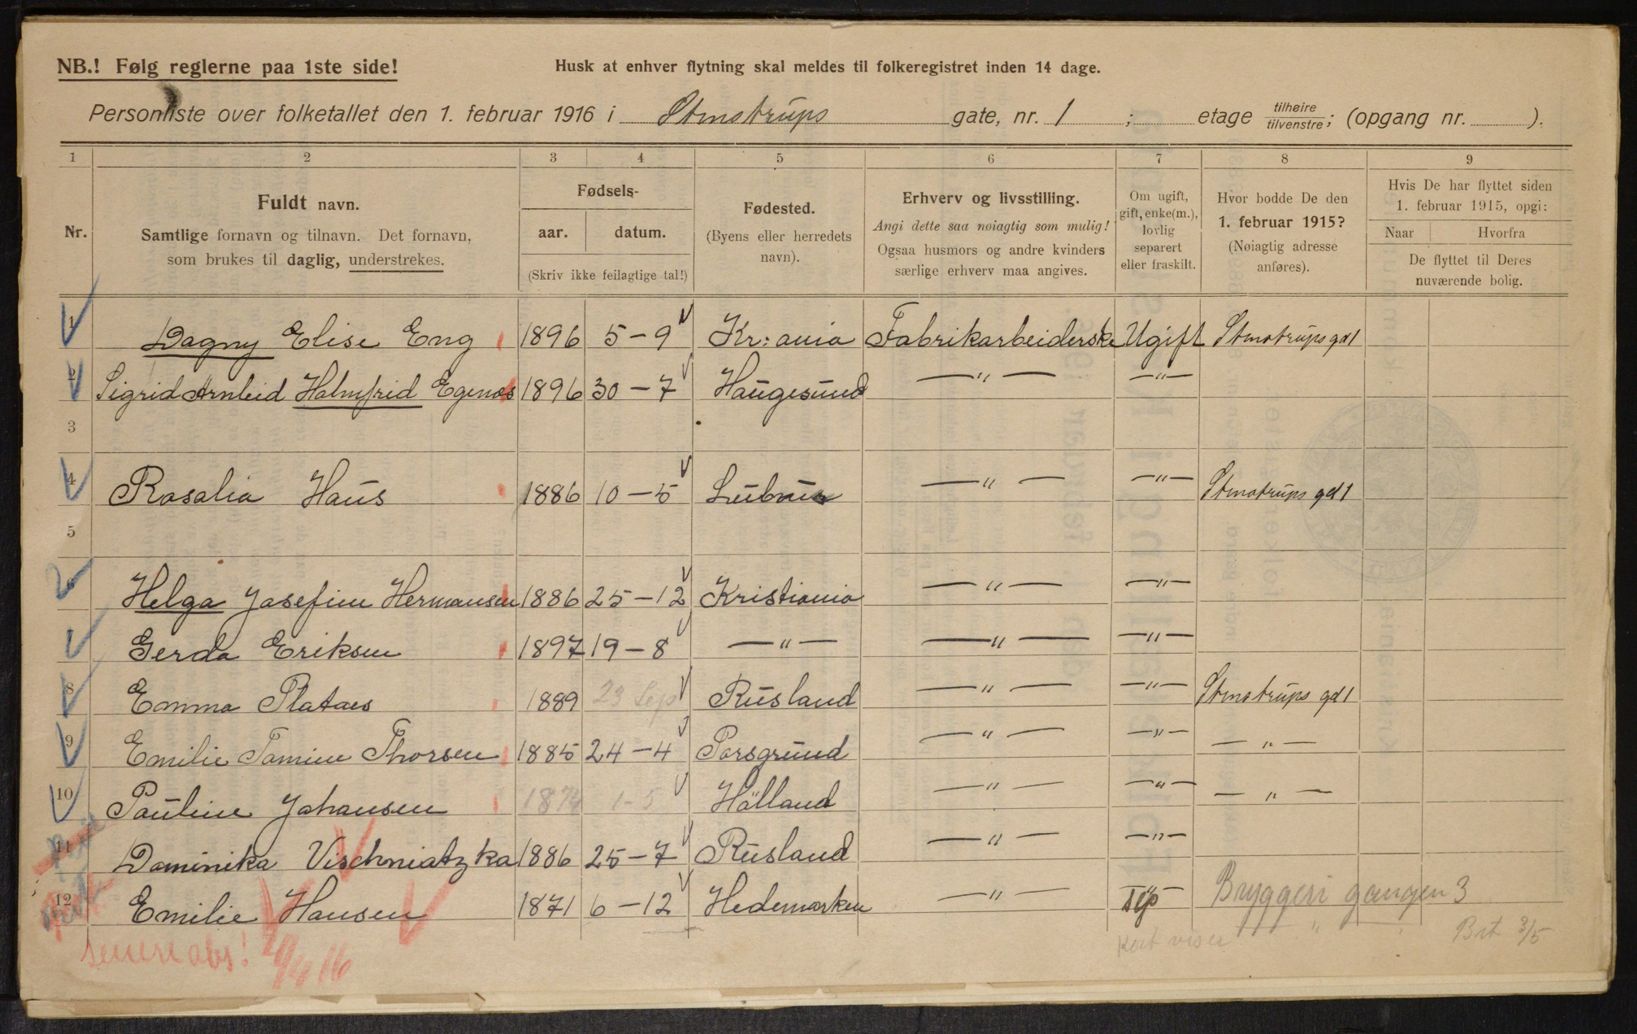 NB.! Følg reglerne paa 1ste side!
Husk at enhver flytning skal meldes til folkeregistret inden 14 dage.
Personliste over folketallet den 1. februar 1916 i Stmstrups gate, nr. 1 ; etage tilhøire tilvenstre; (opgang nr. ).
1 2 3 4 5 6 7 8 9
Nr.
Fuldt navn.
Samtlige fornavn og tilnavn. Det fornavn,
som brukes til daglig, understrekes.
Fødsels-
aar. datum.
(Skriv ikke feilagtige tal!)
Fødested.
(Byens eller herredets
navn).
Erhverv og livsstilling.
Angi dette saa nøiagtig som mulig!
Ogsaa husmors og andre kvinders
særlige erhverv maa angives.
Om ugift,
gift, enke(m.),
lovlig
separert
eller fraskilt.
Hvor bodde De den
1. februar 1915?
(Nøiagtig adresse
anføres).
Hvis De har flyttet siden
1. februar 1915, opgi:
Naar Hvorfra
De flyttet til Deres
nuværende bolig.
1 Dagny Elise Eng 1896 5-9 Kr:ania Fabrikarbeiderske Ugift Stmstrups gd 1
2 Sigrid Arnleid Holmfrid Egenæs 1896 30-7 Haugesund —"— —"—
3
4 Rosalia Haus 1886 10-5 —"— —"— Stmstrups gd 1
5
6 Helga Josefine Hermansen 1886 25-12 Kristiania —"— —"—
Gerda Eriksen 1897 19-8 —"— —"— —"—
8 Emma Plataes 1889 23 Sep Rusland —"— —"— Stmstrups gd 1
9 Emilie Tomine Thorsen 1885 24-4 Porsgrund —"— —"— —"—
10 Pauline Johansen 1874 1-5 Holland —"— —"— —"—
11 Dominika Vischniatzka 1886 25-7 Rusland —"— —"—
12 Emilie Hansen 1871 6-12 Hedemarken —"— —"— Bryggeri gangen 3
senere abs! 29/4 16
Kort viser " Brt 3/5